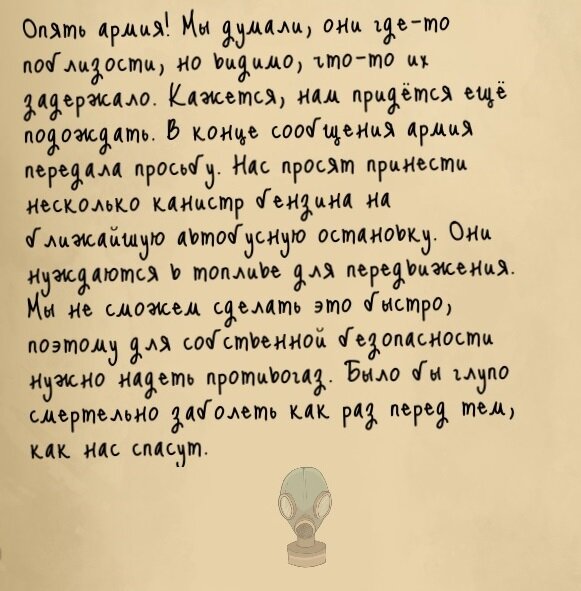 Опять армия! Мы думали, они где-то
поблизости, но видимо, что-то их
задержало. Кажется, нам придётся ещё
подождать. В конце сообщения армия
передала просьбу. Нас просят принести
несколько канистр бензина на
ближайшую автобусную остановку. Они
нуждаются в топливе для передвижения.
Мы не сможем сделать это быстро,
поэтому для собственной безопасности
нужно надеть противогаз. Было бы глупо
смертельно заболеть как раз перед тем,
как нас спасут.